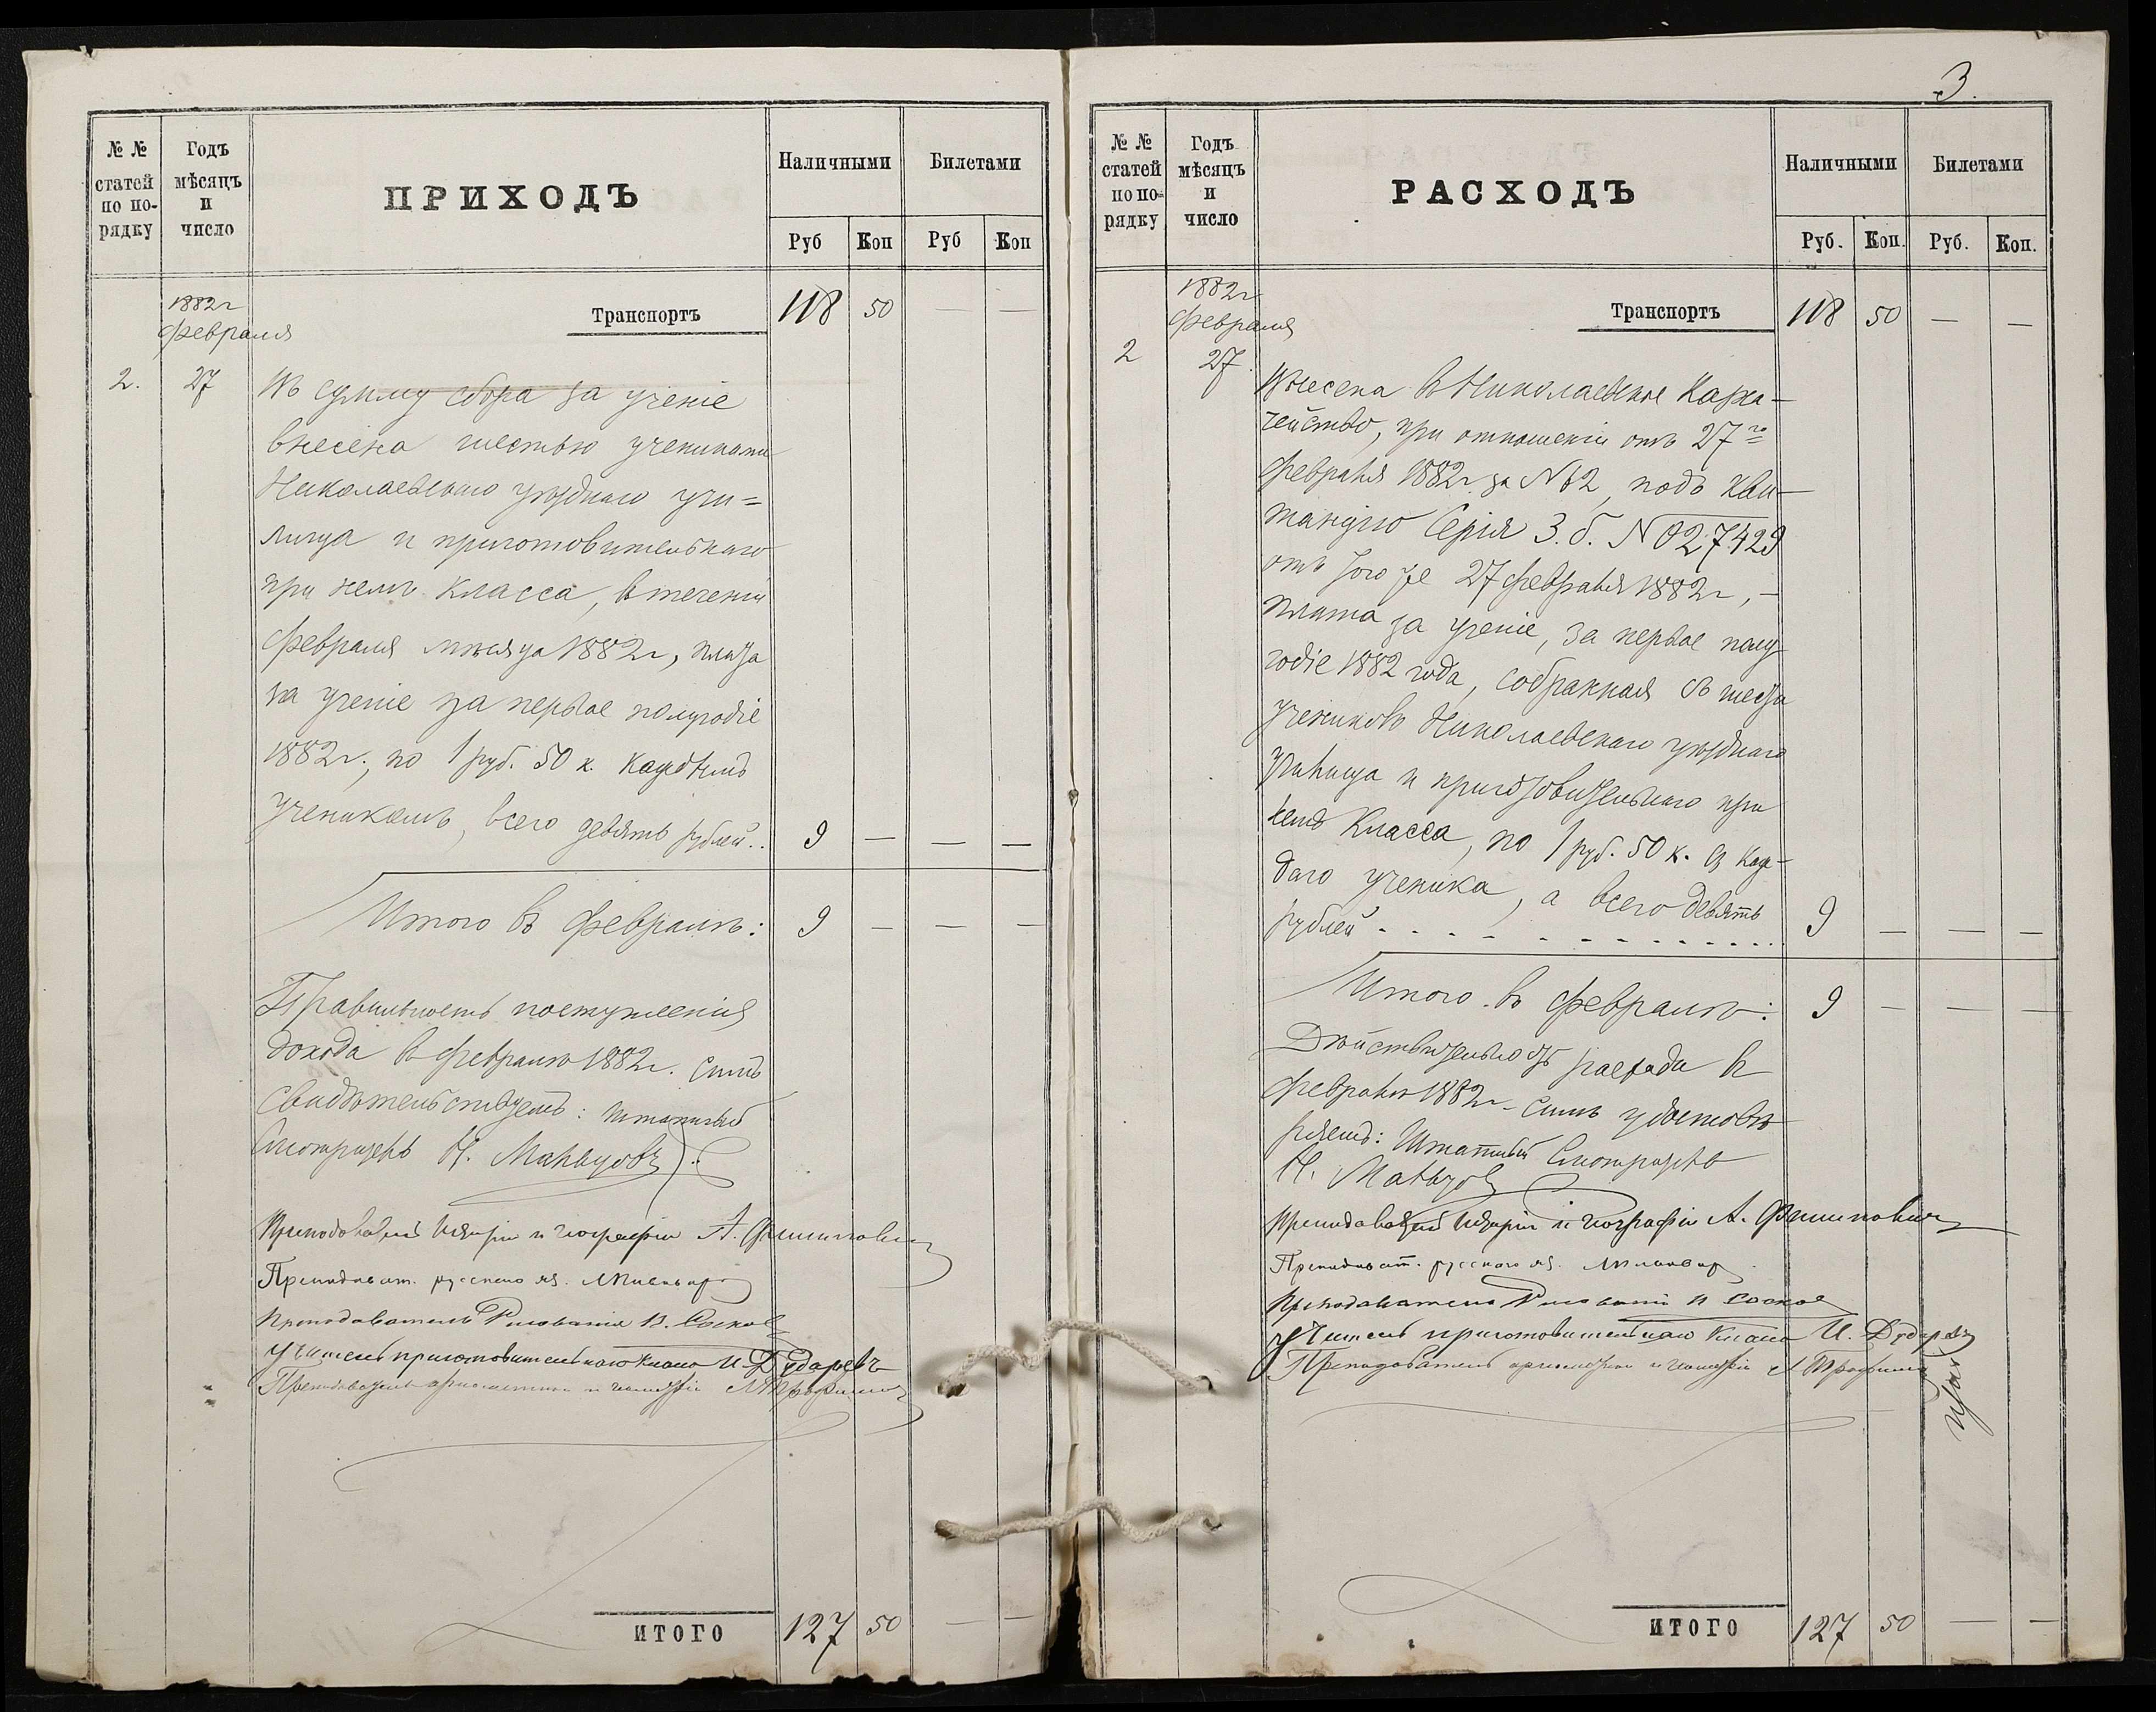 № № статей по по-рядку
Годъ мѣсяцъ и число
ПРИХОДЪ
Наличными
Билетами
Руб
Коп
Руб
Коп
1882 г
Февраля
Транспортъ 118 50 — —
2. 27 Въ сумму сбора за ученіе
внесена шестью учениками
Николаевскаго уѣзднаго учи=
лища и приготовительнаго
при немъ класса, въ теченіи
Февраля мѣсяца 1882 г, плата
за ученіе за первое полугодіе
1882 г., по 1 руб. 50 к. каждымъ
ученикомъ, всего девять рублей.. 9 — — —
Итого въ Февралѣ: 9 — — —
Правильность поступленія
дохода въ Февралѣ 1882 г. симъ
свидѣтельствуетъ: Штатный
Смотритель Н.
Преподаватель Исторіи и Географіи А. Филипповичъ
Преподават. русскаго яз.
Преподаватель Рисованія В.
Учитель приготовительнаго класса И. Дударевъ
Преподаватель ариѳметики и геометріи
ИТОГО 127 50 — —
3.
№ № статей по по-рядку
Годъ мѣсяцъ и число
РАСХОДЪ
Наличными
Билетами
Руб.
Коп.
Руб.
Коп.
1882 г
Февраля
Транспортъ 118 50 — —
2 27 Внесена въ Николаевское Казна-
чейство, при отношеніи отъ 27го
Февраля 1882 г за № 62, подъ кви-
танцію Серія З. б. № 027429
отъ того же 27 Февраля 1882 г, –
плата за ученіе, за первое полу-
годіе 1882 года, собранная съ шести
учениковъ Николаевскаго уѣзднаго
училища и приготовительнаго при
немъ класса, по 1 руб. 50 к. съ каж-
даго ученика, а всего девять
рублей 9 — — —
Итого въ Февралѣ: 9 — — —
Дѣйствительность расхода въ
Февралѣ 1882 г. симъ удостовѣ-
ряетъ: Штатный Смотритель
Н.
Преподаватель Исторіи и географіи А. Филипповичъ
Преподават. русскаго яз.
Преподаватель Рисованія В.
Учитель приготовительнаго класса И. Дударевъ
Преподаватель ариѳметики и геометріи
ИТОГО 127 50 — —